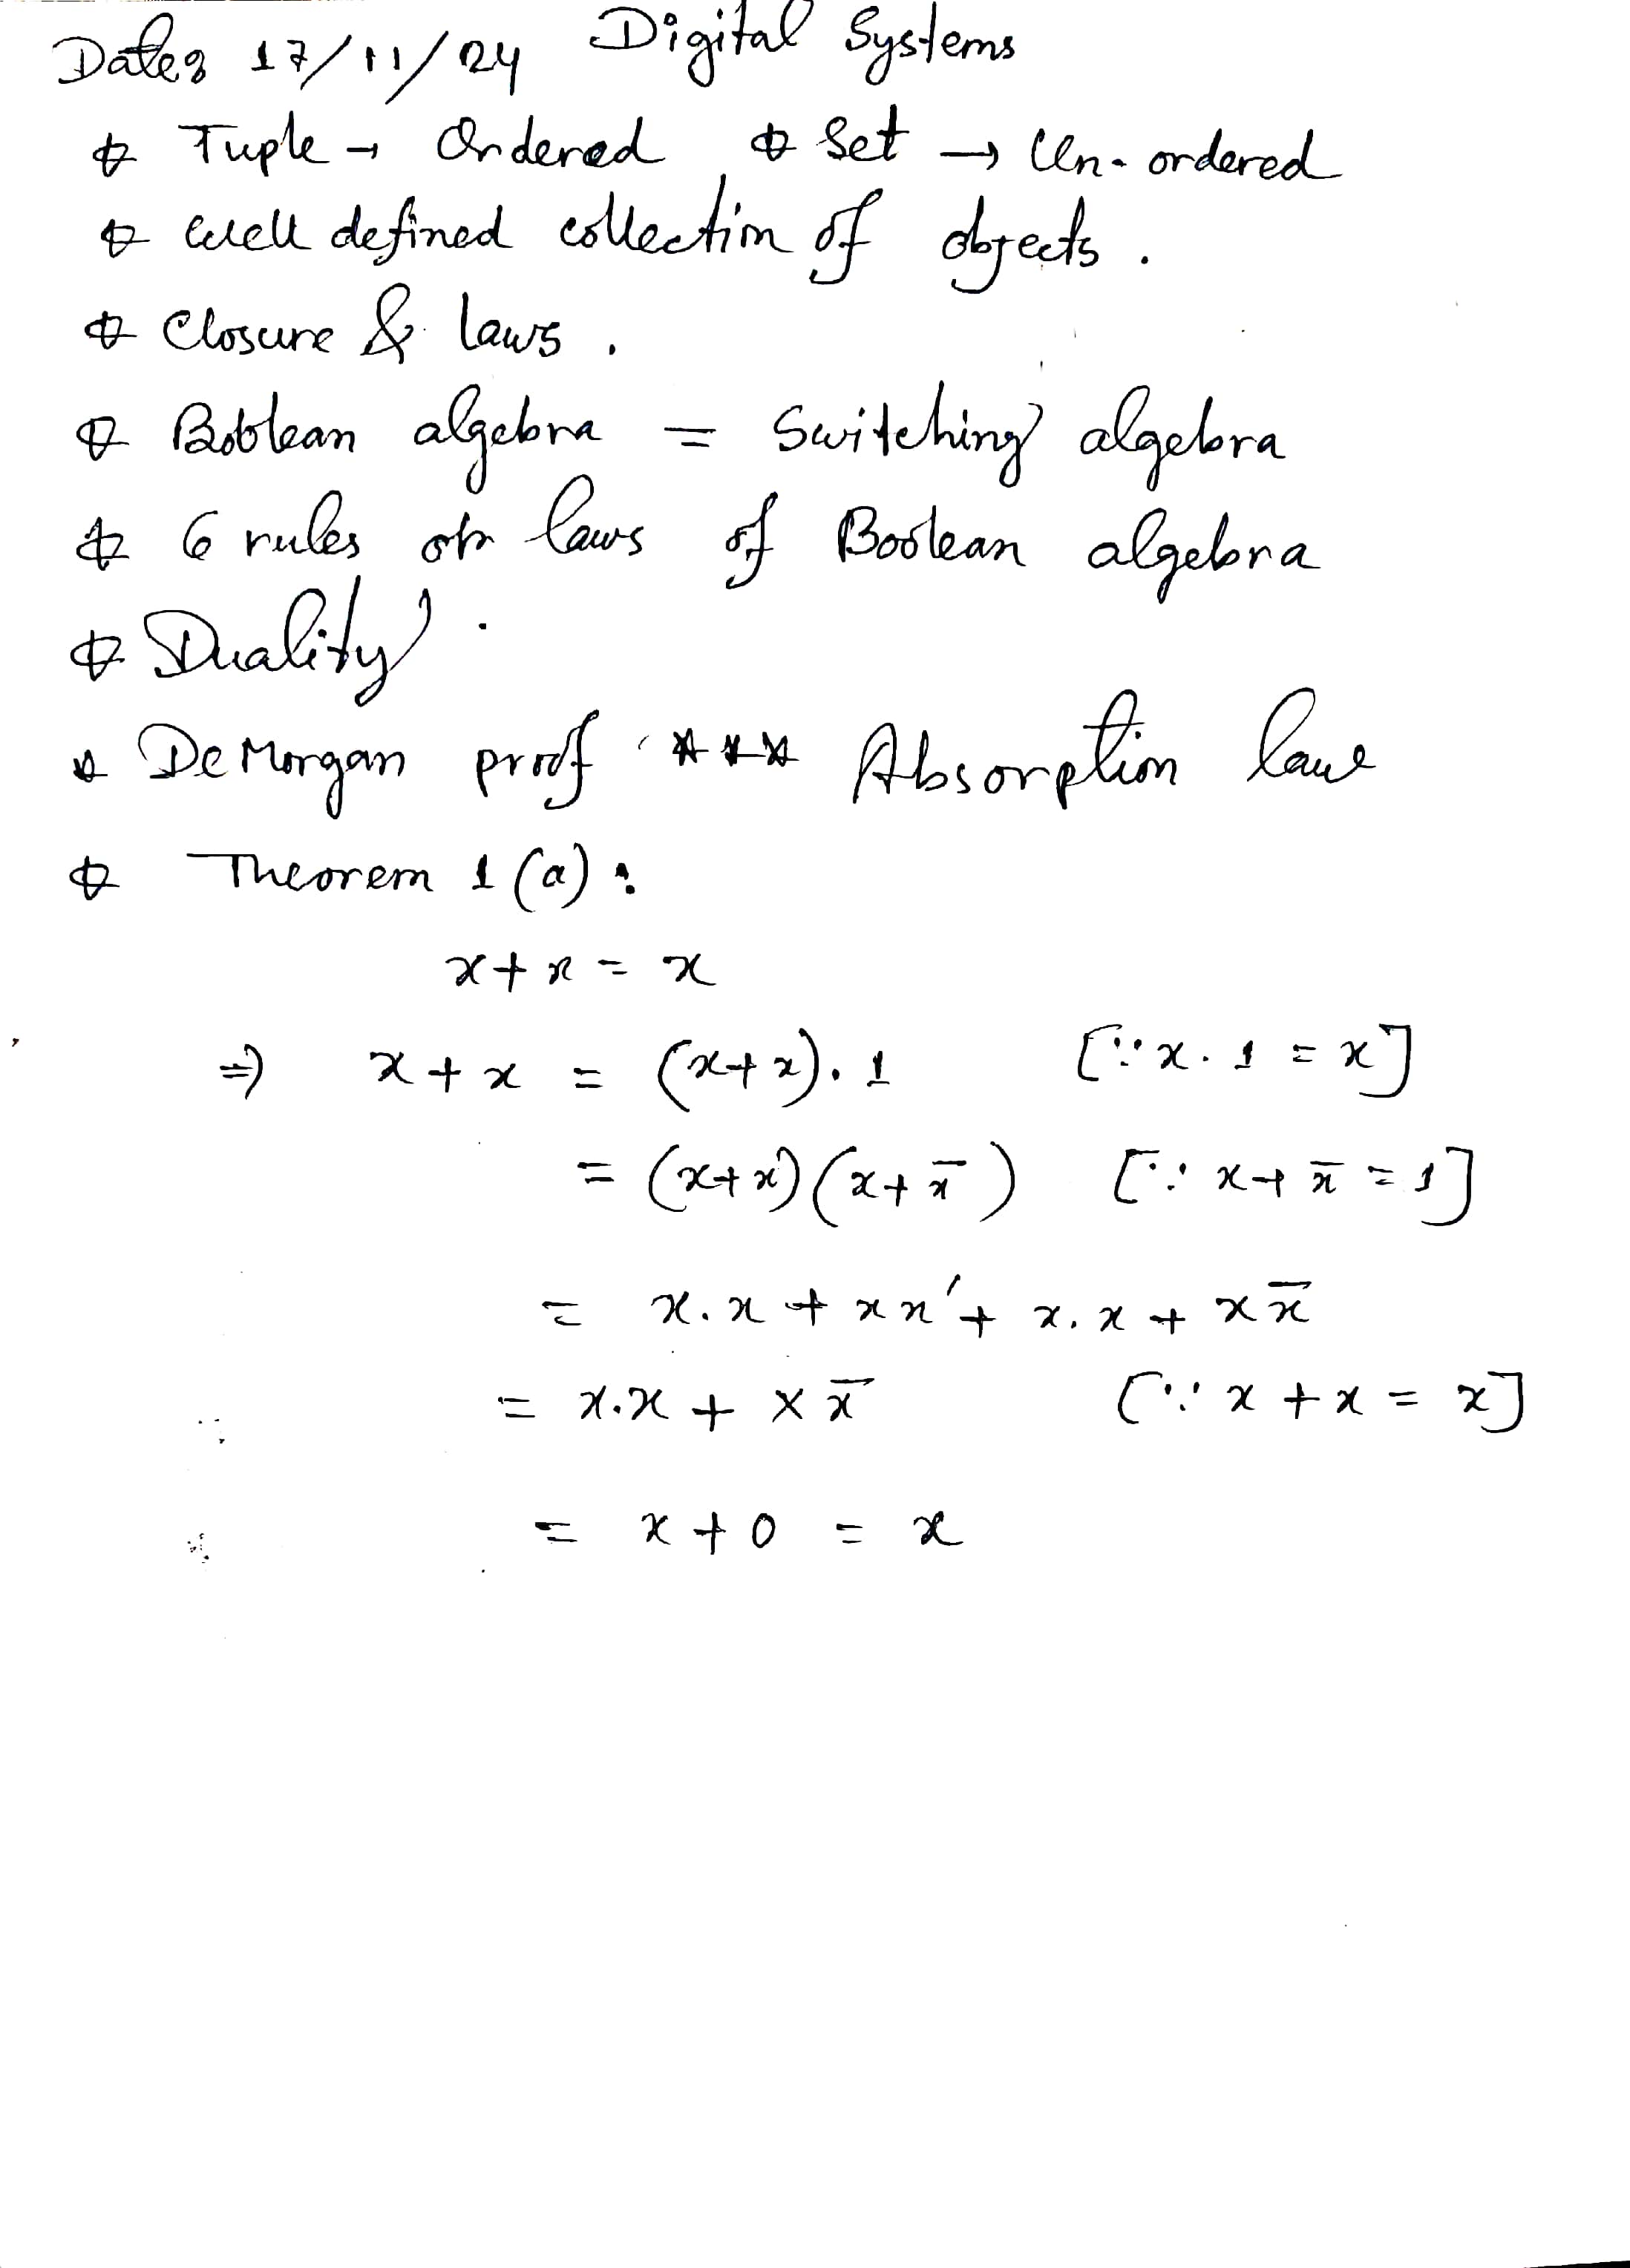 Date: 17/11/24 Digital Systems
* Tuple → Ordered * Set → Un-ordered
* Well defined collection of objects.
* Closure & laws.
* Boolean algebra = Switching algebra
* 6 rules or laws of Boolean algebra
* Duality.
* De Morgan proof *** Absorption law
* Theorem 1(a):
x+x = x
⇒ x+x = (x+x).1 [∵ x.1 = x]
= (x+x)(x+x̄) [∵ x+x̄ = 1]
= x.x + xx' + x.x + xx̄
= x.x + xx̄ [∵ x+x = x]
= x+0 = x